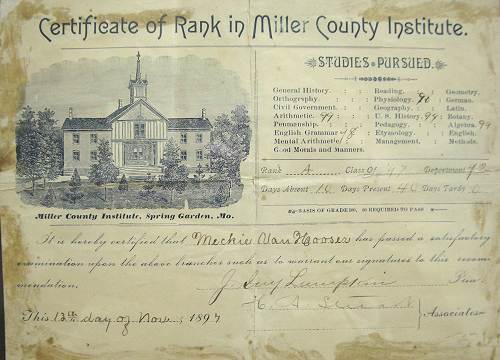 Certificate of Rank in Miller County Institute.
STUDIES PURSUED.
General History. : : Reading. : Geometry.
Orthography. : : Physiology. 90 : German.
Civil Government. : Geography. : Latin.
Arithmetic. 99 : : U. S. History. 99 : Botany.
Penmanship. : : Pedagogy. : Algebra. 99
English Grammar. : Etymology. : English.
Mental Arithmetic. : Management. : Methods.
Good Morals and Manners.
Rank A Class Of '97 Department
Days Absent 16 Days Present Days Tardy 0
BASIS OF GRADE 90, 60 REQUIRED TO PASS
Miller County Institute, Spring Garden, Mo.
It is hereby certified that Meckie Van Hooser has passed a satisfactory
examination upon the above branches such as to warrant our signatures to this recom
mendation. J. Guy Lumpkin Prin.
H. A. Stewart
This 13th day of Nov, 1897 Associates